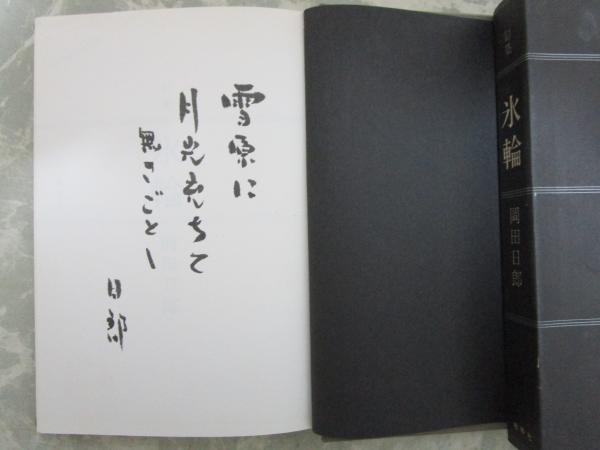 雪原に
月光充ちて
無きごとし
日郎
句集
氷輪
岡田日郎